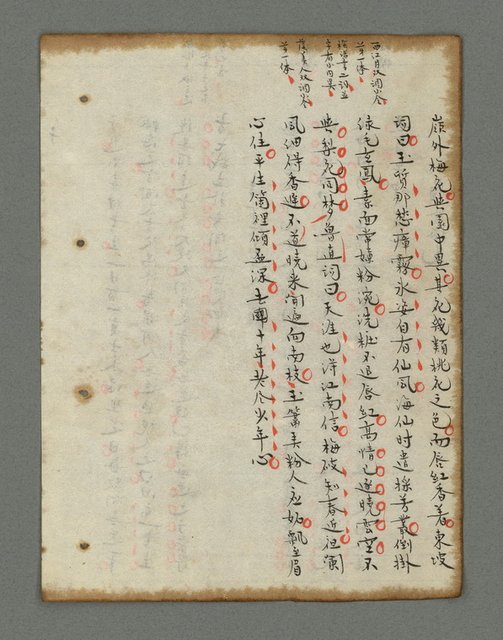 西江月双調
第一体
虞美人双調
第一体
嶺外梅花與國中異其花幾類桃花之色而唇紅香著東坡
詞曰玉質那愁瘴霧氷姿自有仙風海仙時遣探芳叢倒掛
緑毛幺鳳素面常嫌粉涴洗粧不退唇紅高情已逐曉雲空不
與梨花同夢魯直詞曰天涯也得江南信梅破知春近夜闌
風細得香遲不道曉来開遍向南枝玉弄粉人應妬飄到眉
心住平生箇裡願盃深去國十年老尽少年心